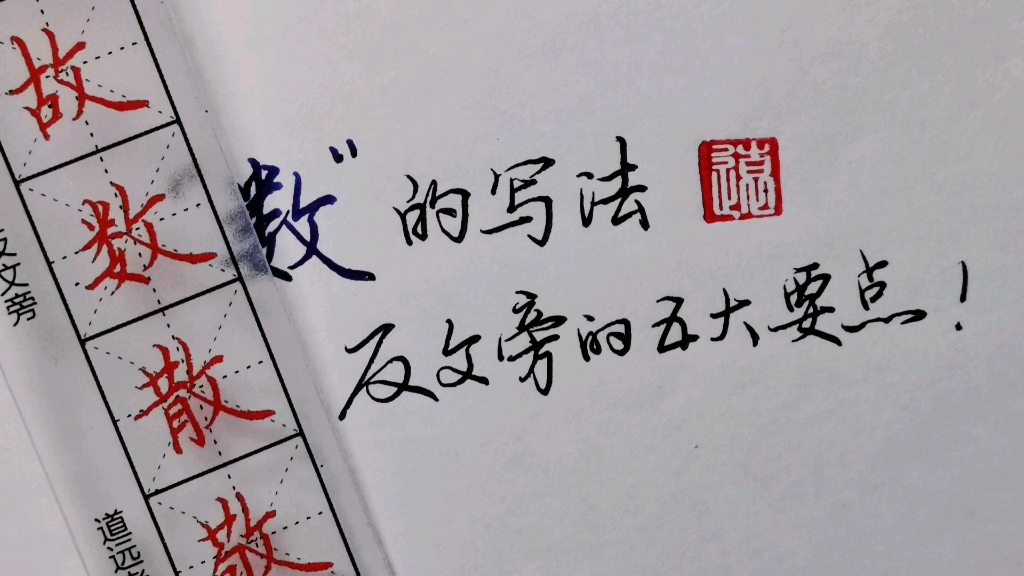 故
数
散
敬
数”的写法
反文旁的五大要点！
文旁
道远
远